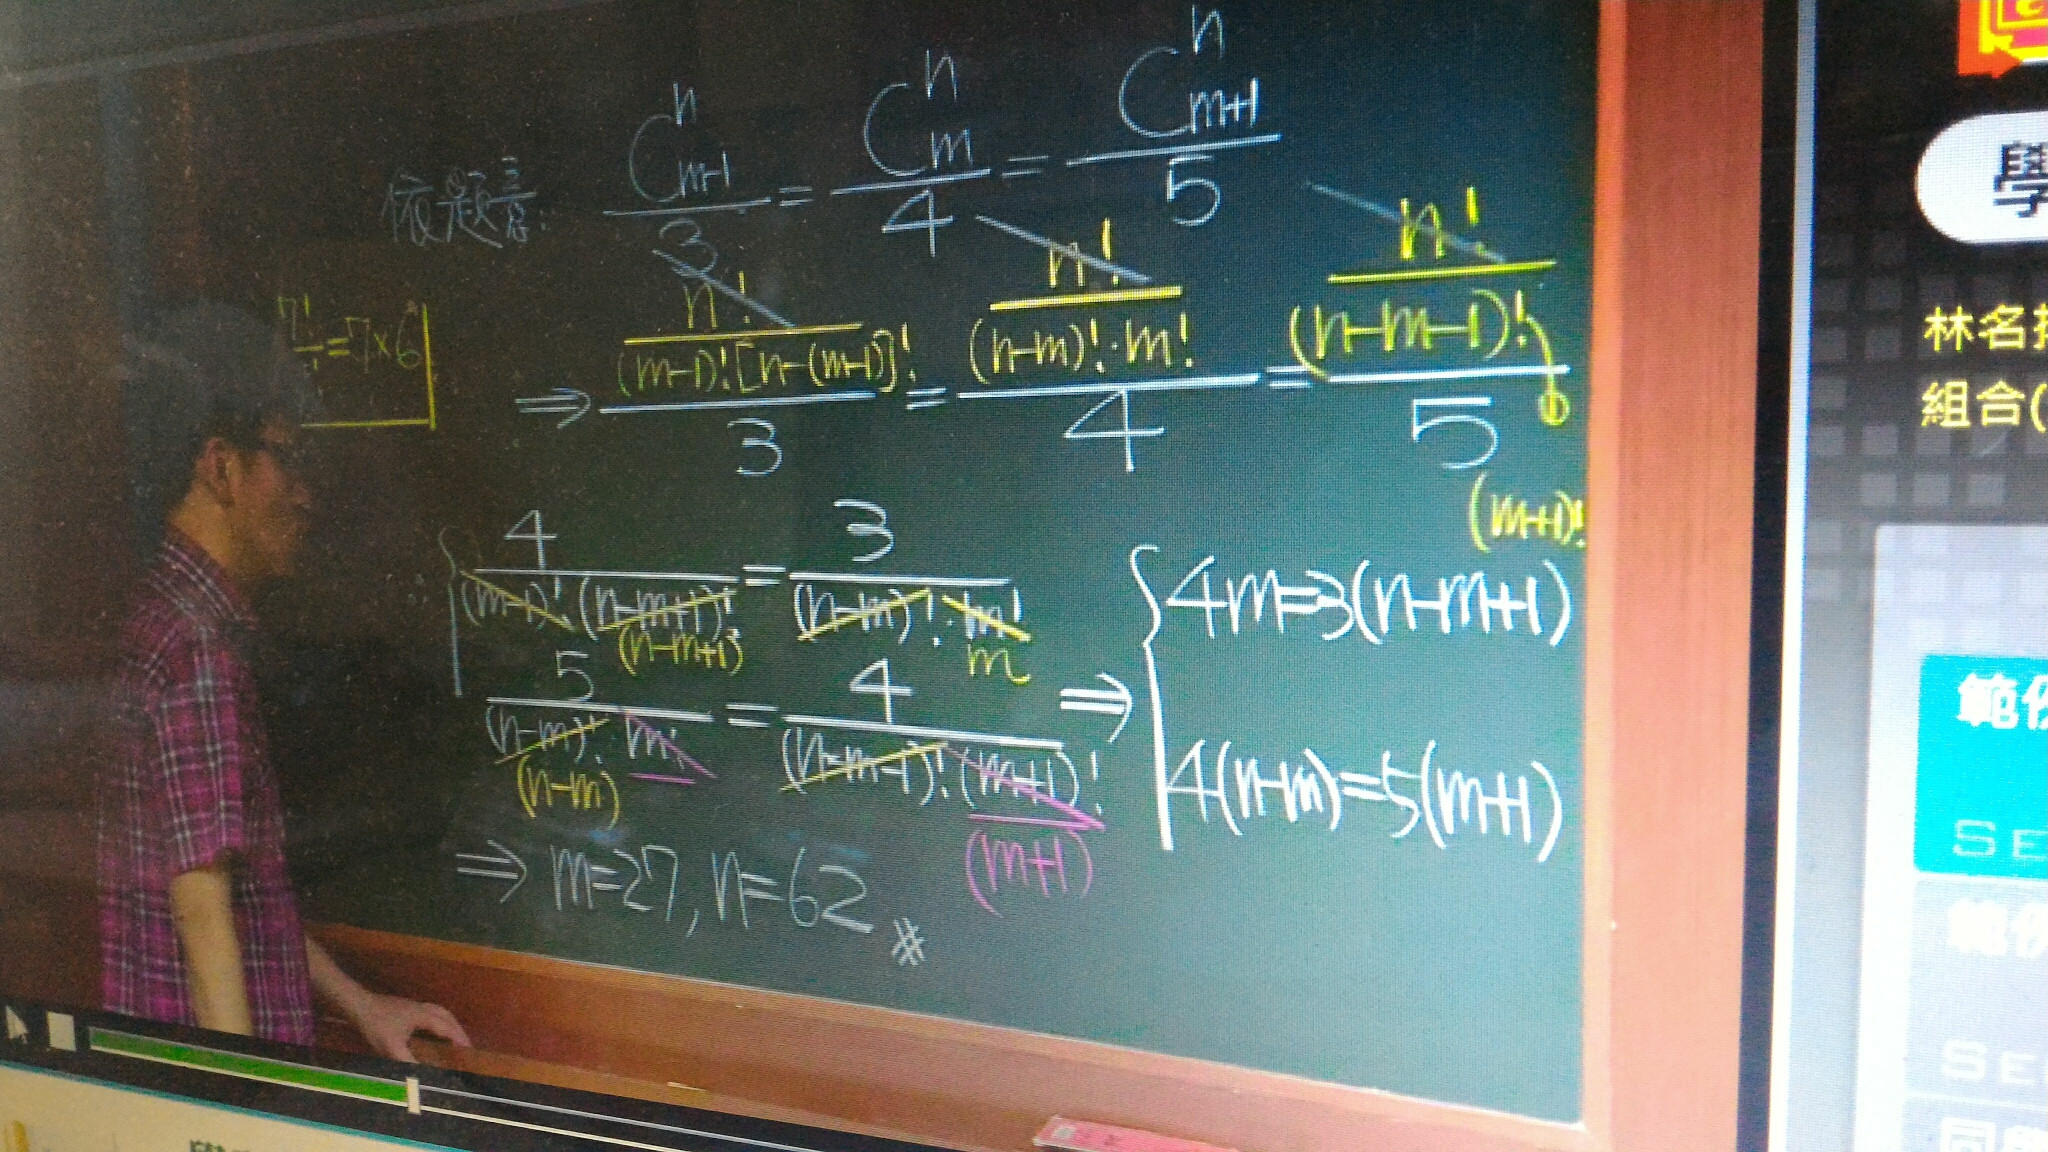 依題意: C^n_{m-1}/3 = C^n_m/4 = C^n_{m+1}/5
7!/ ! = 7×6
⇒ n!/((m-1)![n-(m-1)]!)/3 = n!/((n-m)!·m!)/4 = n!/((n-m-1)!(m+1)!)/5
4/((m-1)!(n-m+1)!) = 3/((n-m)!·m!)
(n-m+1) m
5/((n-m)!·m!) = 4/((n-m-1)!(m+1)!)
(n-m) (m+1)
⇒ { 4m=3(n-m+1)
4(n-m)=5(m+1)
⇒ m=27, n=62
學
林名
組合(
範
SE
SE
同